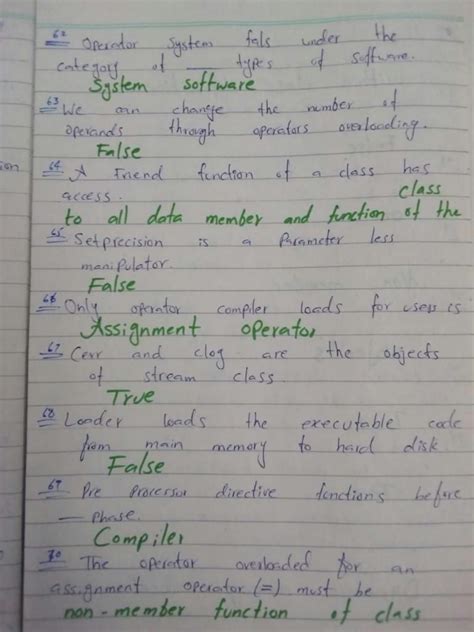 62 Operator System fals under the
category of ___ types of software.
System software
63 We can change the number of
operands through operators overloading.
False
64 A Friend function of a class has
access. class
to all data member and function of the
65 Setprecision is a Parameter less
manipulator.
False
66 Only operator compiler loads for users is
Assignment operator
67 Cerr and clog are the objects
of stream class.
True
68 Loader loads the executable code
from main memory to hard disk
False
69 Pre Processor directive functions before
— Phase.
Compiler
70 The operator overloaded for an
assignment operator (=) must be
non-member function of class